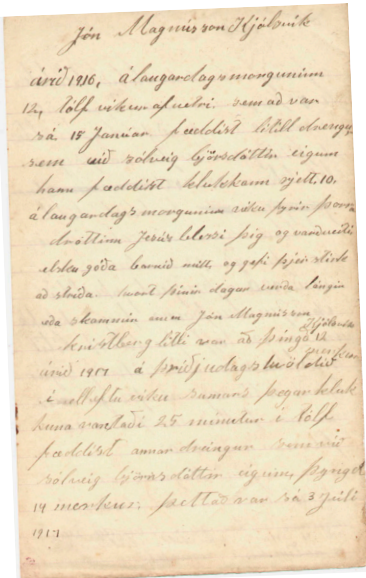 Jón Magnússon Kjólsvík
árið 1916, á laugardagsmorguninn
12, tólf vikur af vetri sem að var
sá 15 Janúar fæddist lítill drengur,
sem við sólveig björsdóttir eigum
hann fæddist klukkann sjett, 10,
á laugardagsmorguninn viku firir þorra
dróttinn Jesús blessi þig og varðveiti
elsku góða barnið mitt, og gefi þjer stirk
að stríða. hvort þínir dagar verða langir
eða skammir Jón Magnússon
Kjólsvík
Kristberg litli var að þingd 12
merkur
árið 1917 á þriðjudagskvöldið
í elleftu viku sumars þegar kluk
kuna vantaði 25 mínutur í tólf
fæddist annar drángur sem við
sólveig björnsdóttir eigum, þyngd
14 merkur. þettað var sá 3 Júlí
1917